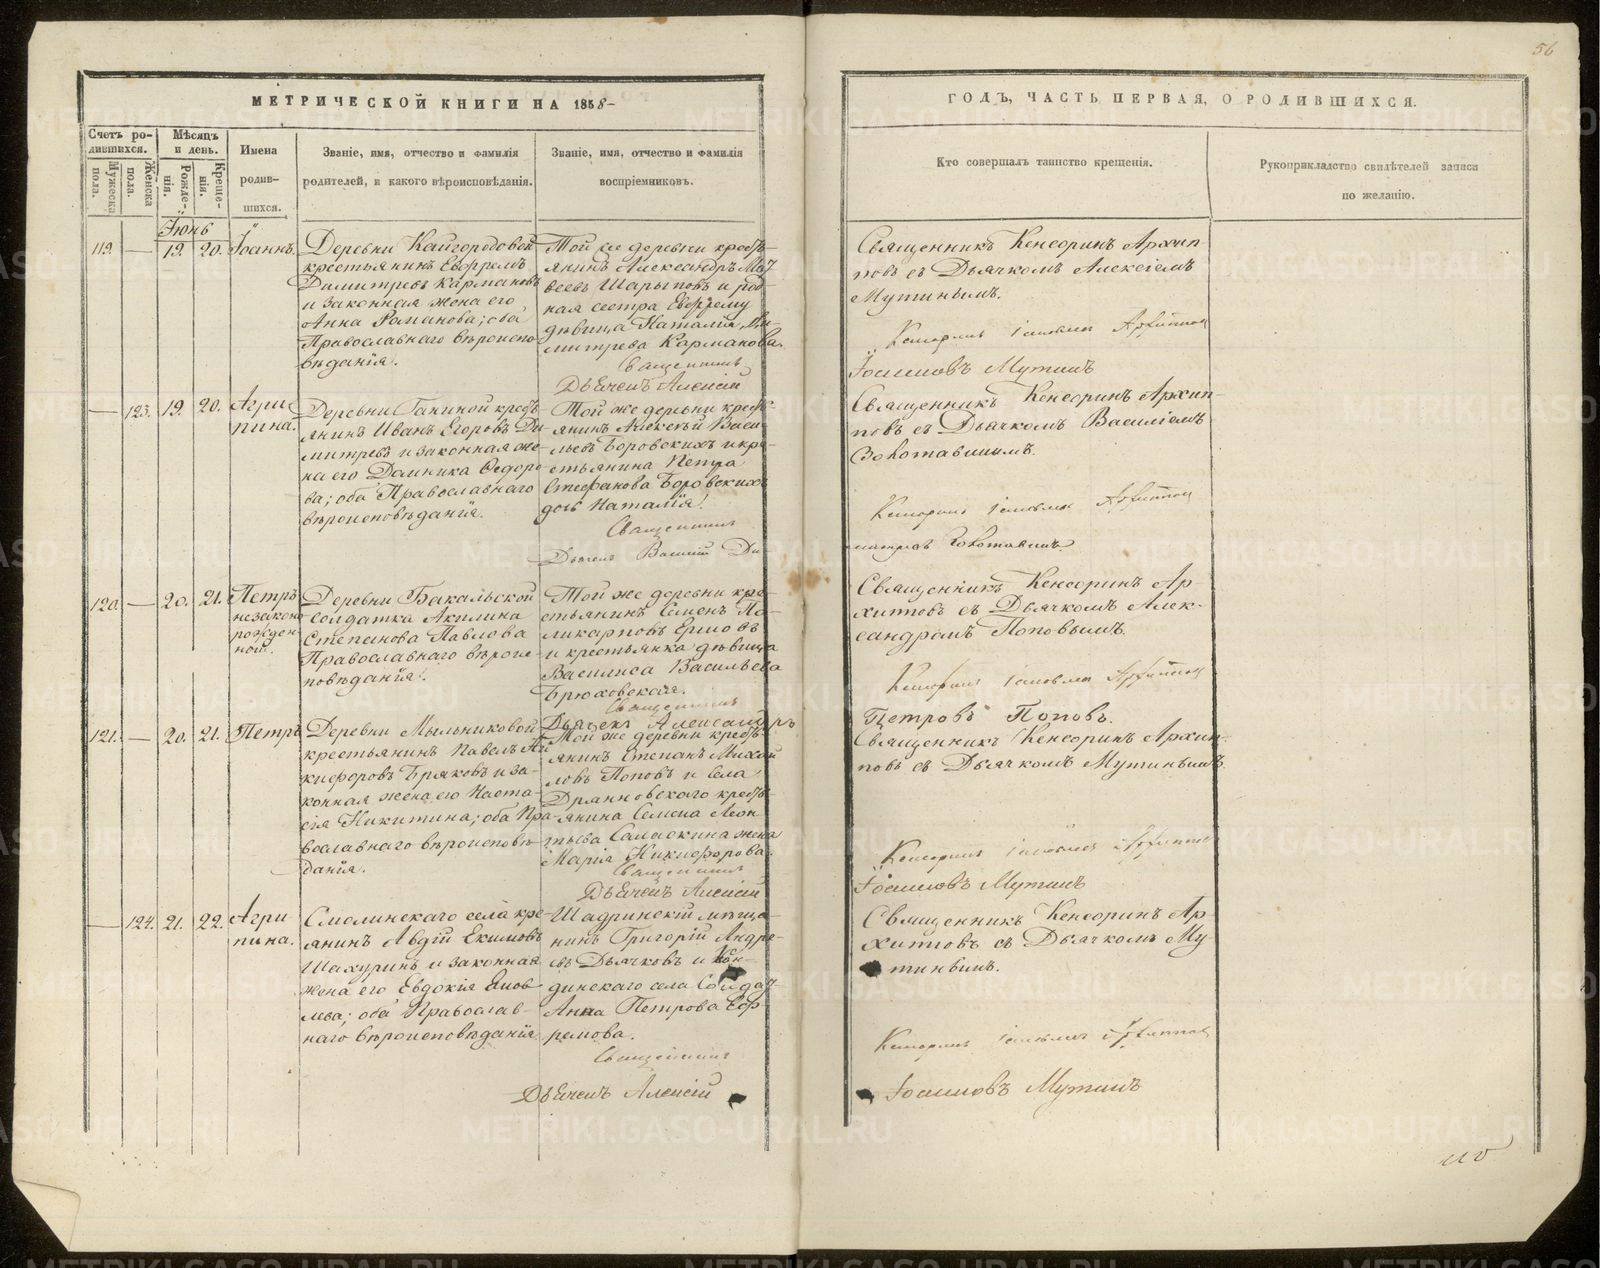 56
МЕТРИЧЕСКОЙ КНИГИ НА 1858
ГОДЪ, ЧАСТЬ ПЕРВАЯ, О РОДИВШИХСЯ.
Счетъ ро-
дившихся.
Мужеска пола.
Женска пола.
Мѣсяцъ
и день.
Рожде-
нія.
Креще-
нія.
Имена
родив-
шихся.
Званіе, имя, отчество и фамилія
родителей, и какого вѣроисповѣданія.
Званіе, имя, отчество и фамилія
воспріемниковъ.
Кто совершалъ таинство крещенія.
Рукоприкладство свидѣтелей записи
по желанію.
Іюнь
119. — 19. 20. Іоаннъ.
Деревни Кайгородовой
крестьянинъ Евфремъ
Димитревъ Кармановъ
и законная жена его
Анна Романова; оба
Православнаго вѣроиспо-
вѣданія.
Той же деревни кресть-
янинъ Александръ Мат-
веевъ Шарыповъ и род-
ная сестра Евфрему
дѣвица Наталія Ди-
митрева Карманова.
Священникъ
Дьячекъ Алексій
Священникъ Кенсоринъ Архип-
повъ съ Дьячкомъ Алексіемъ
Мутинымъ.
Кенсоринъ Архиповъ
Іоанновъ Мутинъ
— 123. 19. 20. Агри-
пина.
Деревни Ганиной кресть-
янинъ Иванъ Егоровъ Ди-
митревъ и законная же-
на его Домника Ѳедоро-
ва; оба Православнаго
вѣроисповѣданія.
Той же деревни кресть-
янинъ Алексѣй Васи-
льевъ Боровскихъ и кре-
стьянина Петра
Стефанова Боровскихъ
дочь Наталія.
Священникъ
Дьячекъ Василій
Священникъ Кенсоринъ Архип-
повъ съ Дьячкомъ Василіемъ
Кенсоринъ Архиповъ
120 — 20. 21. Петръ
незакон-
рожден-
ной.
Деревни Бакальской
солдатка Акилина
Степанова Павлова
Православнаго вѣроис-
повѣданія.
Той же деревни кре-
стьянинъ Семенъ По-
ликарповъ Ершовъ
и крестьянка дѣвица
Василиса Васильева
Брюховская.
Священникъ
Дьячекъ Александръ
Священникъ Кенсоринъ Ар-
хиповъ съ Дьячкомъ Алек-
сандромъ Поповымъ.
Кенсоринъ Архиповъ
Петровъ Поповъ.
121. — 20. 21. Петръ
Деревни Мыльниковой
крестьянинъ Павелъ Ни-
кифоровъ Бряковъ и за-
конная жена его Наста-
сія Никитина; оба Пра-
вославнаго вѣроисповѣ-
данія.
Той же деревни кресть-
янинъ Степанъ Михай-
ловъ Поповъ и села
кресть-
янина Семена Леон-
тьева жена
Марія Никифорова.
Священникъ
Дьячекъ Алексій
Священникъ Кенсоринъ Архип-
повъ съ Дьячкомъ Мутинымъ.
Кенсоринъ Архиповъ
Іоанновъ Мутинъ
— 124. 21. 22. Агри-
пина.
Смолинскаго села кре-
янинъ Авдій Екимовъ
Шахуринъ и законная
жена его Евдокія Иов-
лева; оба Православ-
наго вѣроисповѣданія.
Шадринскій мѣща-
нинъ Григорій Андре-
евъ Дьячковъ и Кон-
динскаго села Солдат-
Анна Петрова Еф-
ремова.
Священникъ
Дьячекъ Алексій
Священникъ Кенсоринъ Ар-
хиповъ съ Дьячкомъ Му-
тинымъ.
Кенсоринъ Архиповъ
Іоанновъ Мутинъ
METRIKI.GASO-URAL.RU